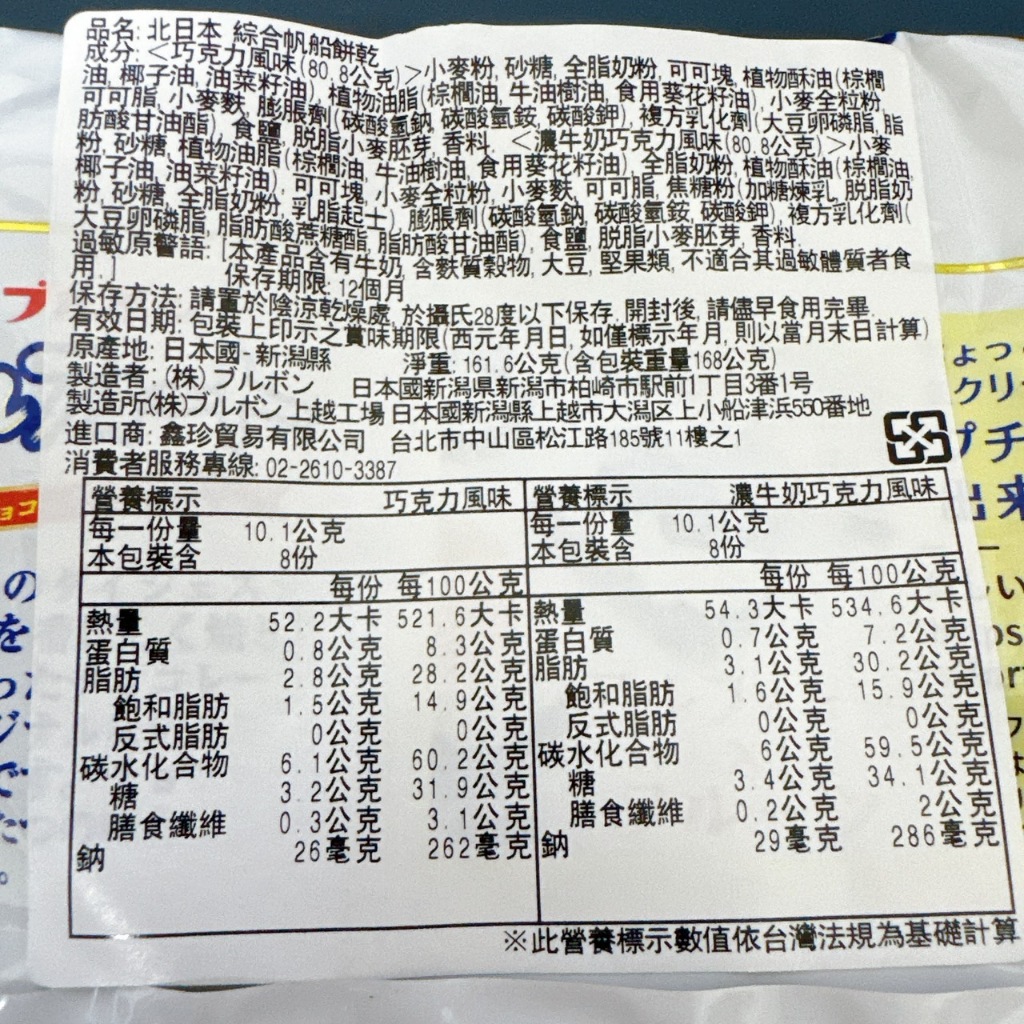 品名: 北日本 綜合帆船餅乾
成分: <巧克力風味(80.8公克)>小麥粉, 砂糖, 全脂奶粉, 可可塊, 植物酥油(棕櫚
油, 椰子油, 油菜籽油), 植物油脂(棕櫚油, 牛油樹油, 食用葵花籽油), 小麥全粒粉,
可可脂, 小麥麩, 膨脹劑(碳酸氫鈉, 碳酸氫銨, 碳酸鉀), 複方乳化劑(大豆卵磷脂, 脂
肪酸甘油酯), 食鹽, 脫脂小麥胚芽, 香料. <濃牛奶巧克力風味(80.8公克)>小麥
粉, 砂糖, 植物油脂(棕櫚油, 牛油樹油, 食用葵花籽油), 全脂奶粉, 植物酥油(棕櫚油,
椰子油, 油菜籽油), 可可塊, 小麥全粒粉, 小麥麩, 可可脂, 焦糖粉(加糖煉乳, 脫脂奶
粉, 砂糖, 全脂奶粉, 乳脂起士), 膨脹劑(碳酸氫鈉, 碳酸氫銨, 碳酸鉀), 複方乳化劑(
大豆卵磷脂, 脂肪酸蔗糖酯, 脂肪酸甘油酯), 食鹽, 脫脂小麥胚芽, 香料.
過敏原警語: [本產品含有牛奶, 含麩質穀物, 大豆, 堅果類, 不適合其過敏體質者食
用.] 保存期限: 12個月
保存方法: 請置於陰涼乾燥處, 於攝氏28度以下保存, 開封後, 請儘早食用完畢.
有效日期: 包裝上印示之賞味期限(西元年月日, 如僅標示年月, 則以當月末日計算)
原產地: 日本國-新潟縣 淨重: 161.6公克(含包裝重量168公克)
製造者: (株) ブルボン 日本國新潟県新潟市柏崎市駅前1丁目3番1号
製造所:(株)ブルボン 上越工場 日本國新潟縣上越市大潟区上小船津浜550番地
進口商: 鑫珍貿易有限公司 台北市中山區松江路185號11樓之1
消費者服務專線: 02-2610-3387
營養標示 巧克力風味
每一份量 10.1公克
本包裝含 8份
每份 每100公克
熱量 52.2大卡 521.6大卡
蛋白質 0.8公克 8.3公克
脂肪 2.8公克 28.2公克
飽和脂肪 1.5公克 14.9公克
反式脂肪 0公克 0公克
碳水化合物 6.1公克 60.2公克
糖 3.2公克 31.9公克
膳食纖維 0.3公克 3.1公克
鈉 26毫克 262毫克
營養標示 濃牛奶巧克力風味
每一份量 10.1公克
本包裝含 8份
每份 每100公克
熱量 54.3大卡 534.6大卡
蛋白質 0.7公克 7.2公克
脂肪 3.1公克 30.2公克
飽和脂肪 1.6公克 15.9公克
反式脂肪 0公克 0公克
碳水化合物 6公克 59.5公克
糖 3.4公克 34.1公克
膳食纖維 0.2公克 2公克
鈉 29毫克 286毫克
※此營養標示數值依台灣法規為基礎計算